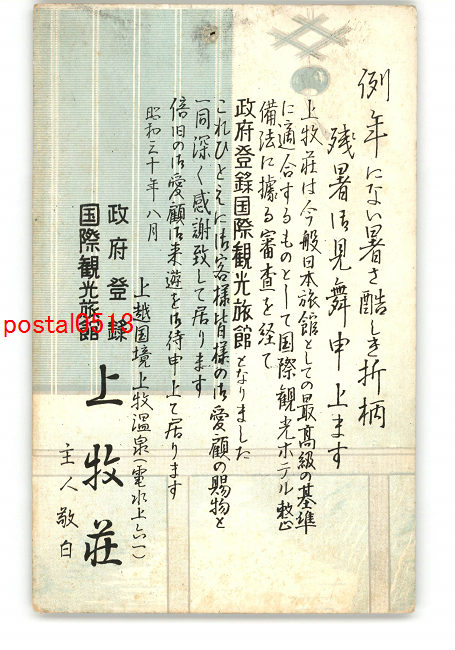 例年にない暑さ酷しき折柄
残暑御見舞申上ます
上牧荘は今般日本旅館としての最高級の基準
に適合するものとして国際観光ホテル整
備法に據る審査を経て
政府登録国際観光旅館となりました
これひとえに御客様皆様の御愛顧の賜物と
一同深く感謝致して居ります
倍旧の御愛顧御来遊を御待申上て居ります
昭和三十年八月
上越国境上牧温泉(電水上六一)
政府登録
国際観光旅館
上牧荘
主人敬白
postal0518